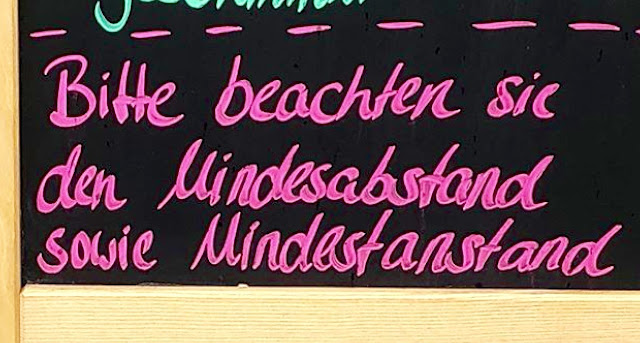 Bitte beachten sie
den Mindesabstand
sowie Mindestanstand